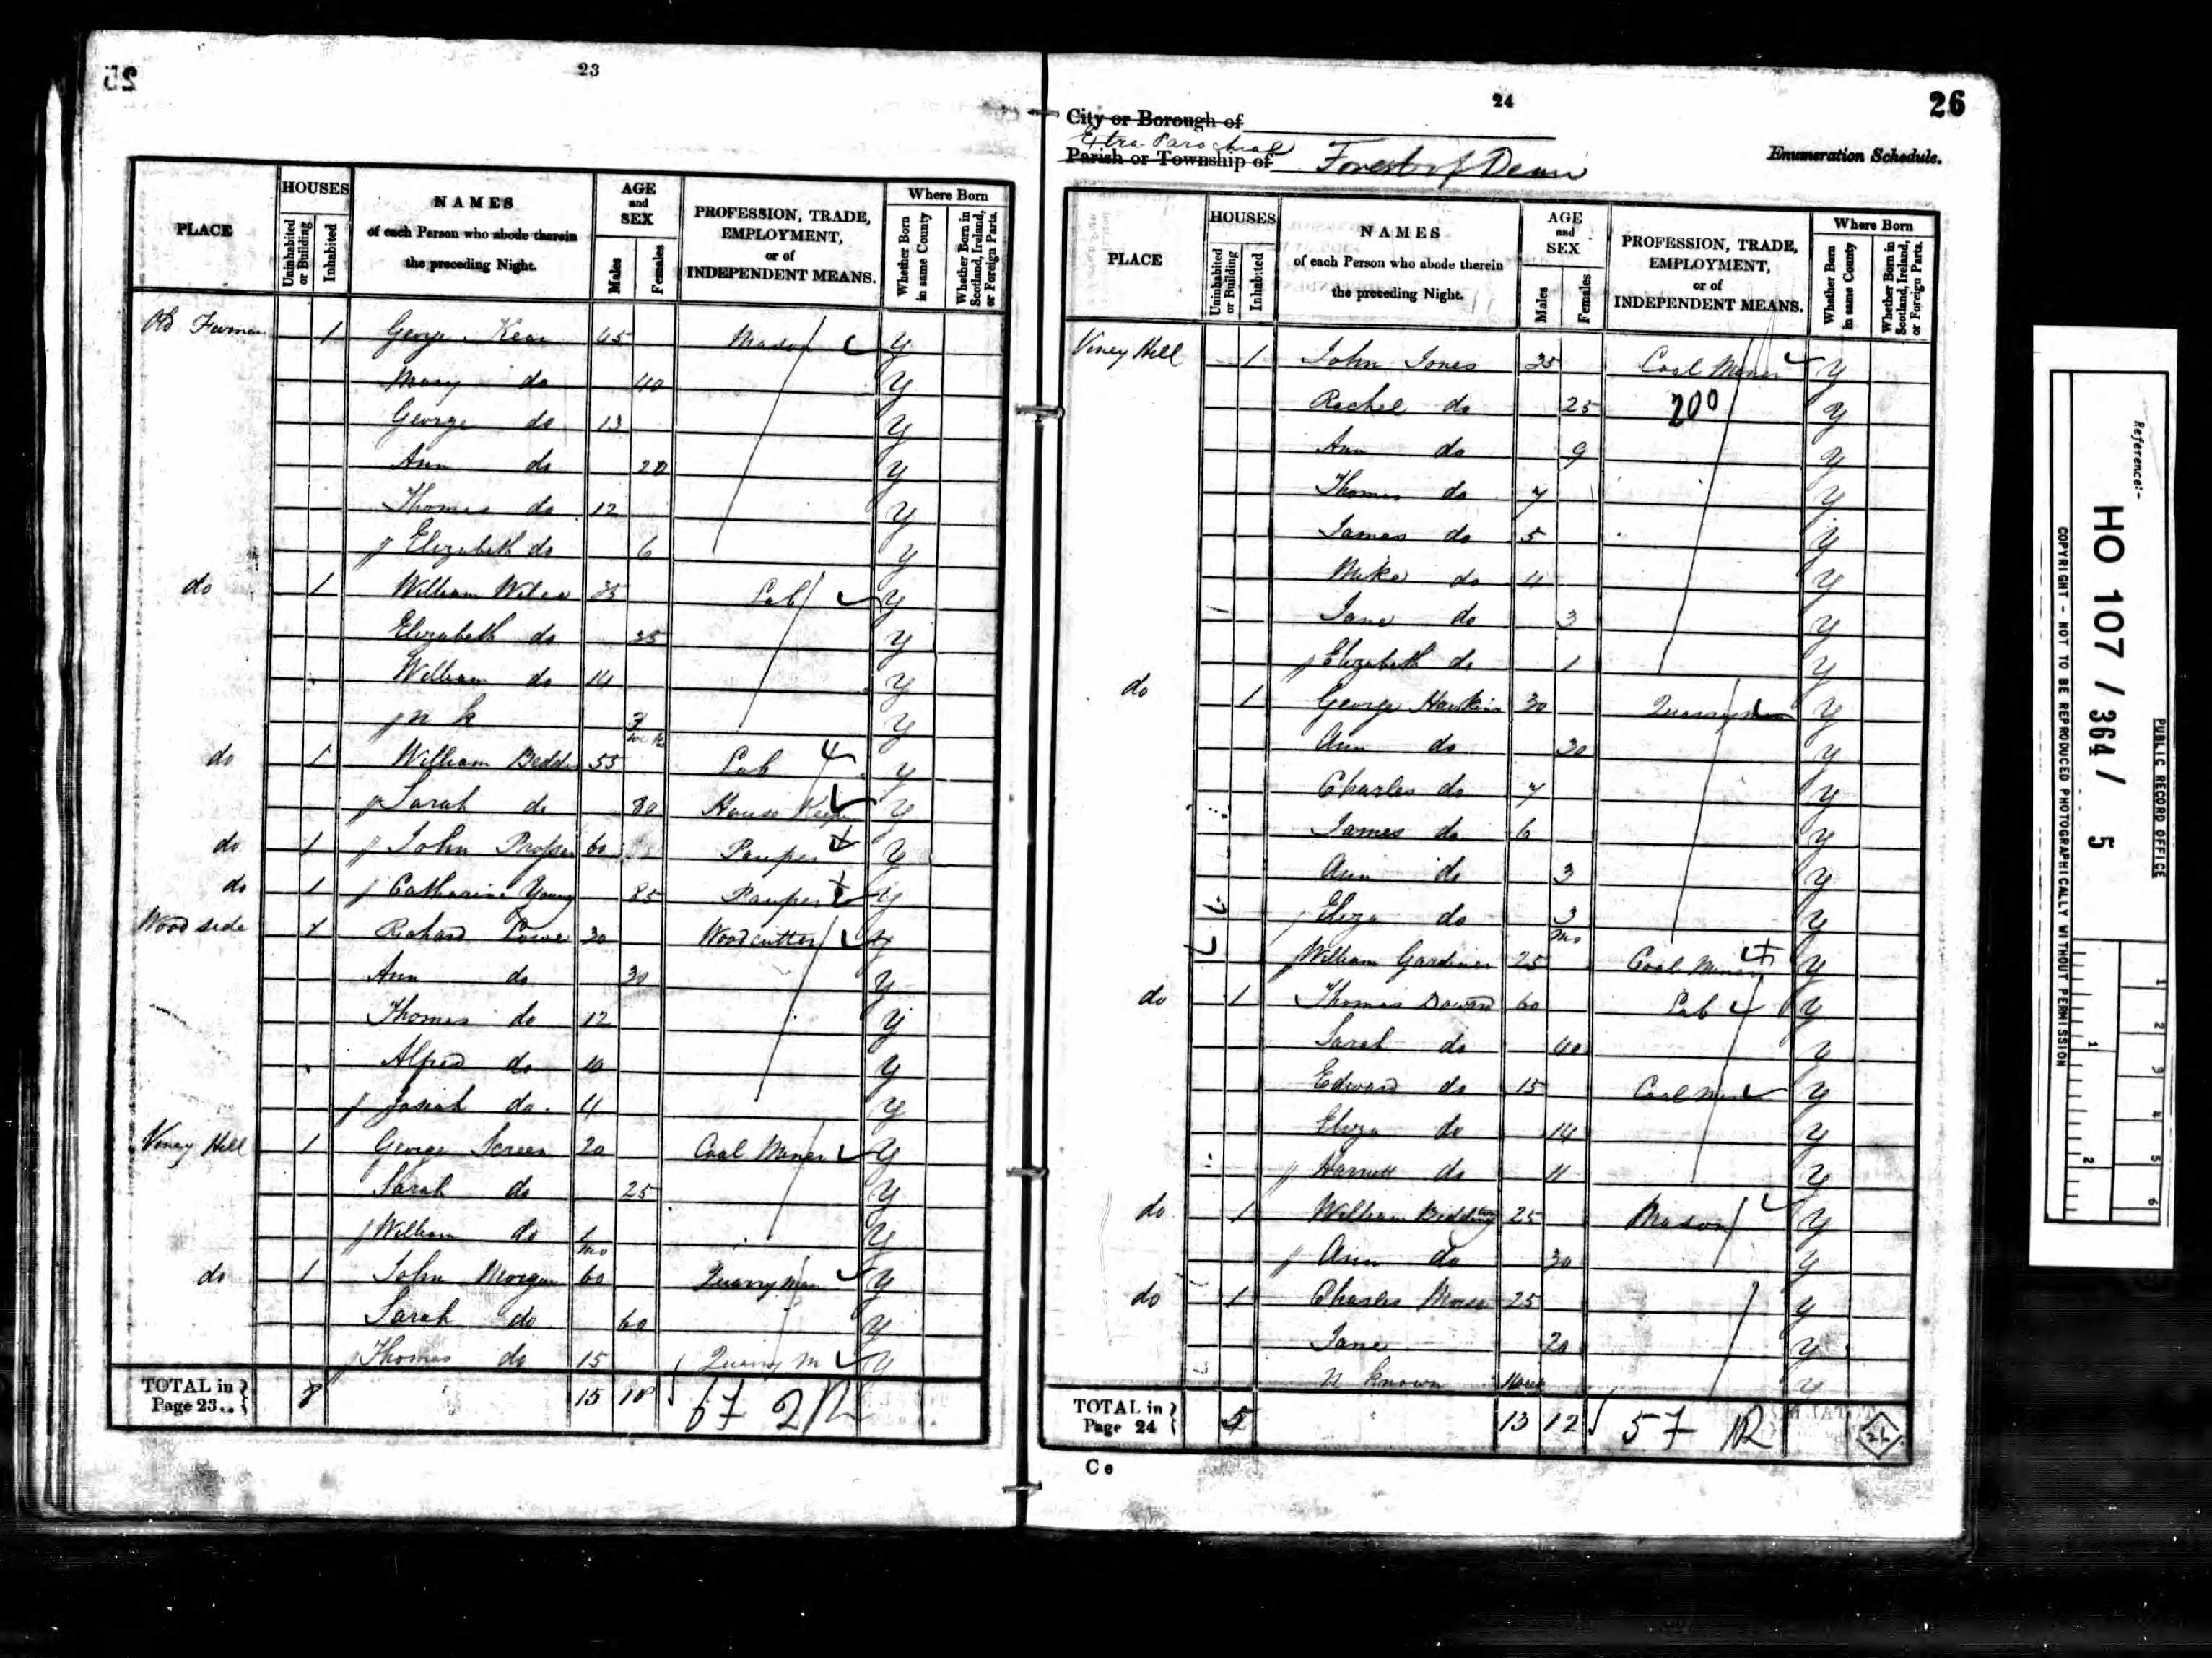 23
HOUSES
AGE and SEX
Where Born
PLACE
Uninhabited or Building
Inhabited
NAMES of each Person who abode therein the preceding Night.
Males
Females
PROFESSION, TRADE, EMPLOYMENT, or of INDEPENDENT MEANS.
Whether Born in same County
Whether Born in Scotland, Ireland, or Foreign Parts.
1 George Kear 45 Mason y
Mary do 40 y
George do 13 y
Ann do 20 y
Thomas do 12 y
Elizabeth do 6 y
do 1 William 35 Lab y
Elizabeth do 35 y
William do 14 y
n k 3 y
do 1 William 55 Lab y
Sarah do 80 House y
do 1 John Prosser 60 Pauper y
do 1 Catharine Young 85 Pauper y
Wood side 1 Richard 30 Woodcutter y
Ann do 30 y
Thomas do 12 y
Alfred do 10 y
Josiah do 4 y
Viney Hill 1 George Screen 20 Coal Miner y
Sarah do 25 y
William do 1 mo y
do 1 John Morgan 60 Quarryman y
Sarah do 60 y
Thomas do 15 Quarry m y
TOTAL in Page 23.. 15 10
24
26
City or Borough of
Extra Parochial
Parish or Township of Forest of Dean
Enumeration Schedule.
HOUSES
AGE and SEX
Where Born
PLACE
Uninhabited or Building
Inhabited
NAMES of each Person who abode therein the preceding Night.
Males
Females
PROFESSION, TRADE, EMPLOYMENT, or of INDEPENDENT MEANS.
Whether Born in same County
Whether Born in Scotland, Ireland, or Foreign Parts.
Viney Hill 1 John Jones 25 Coal Miner y
Rachel do 25 200 y
Ann do 9 y
Thomas do 7 y
James do 5 y
do 4 y
Jane do 3 y
Elizabeth do 1 y
do 1 George Hawkins 30 y
Ann do 30 y
Charles do 7 y
James do 6 y
Ann do 3 y
Eliza do 3 mo y
William Gardiner 25 Coal Miner y
do 1 Thomas 60 Lab y
Sarah do 40 y
Edward do 15 Coal y
Eliza do 14 y
do 11 y
do 1 William 25 Mason y
Ann do 30 y
do 1 Charles Morse 25 y
Jane 20 y
n known y
TOTAL in Page 24 5 13 12 57
C e
Reference:-
HO 107 / 364 / 5
PUBLIC RECORD OFFICE
COPYRIGHT - NOT TO BE REPRODUCED PHOTOGRAPHICALLY WITHOUT PERMISSION
1 2 3 4 5 6
1 2